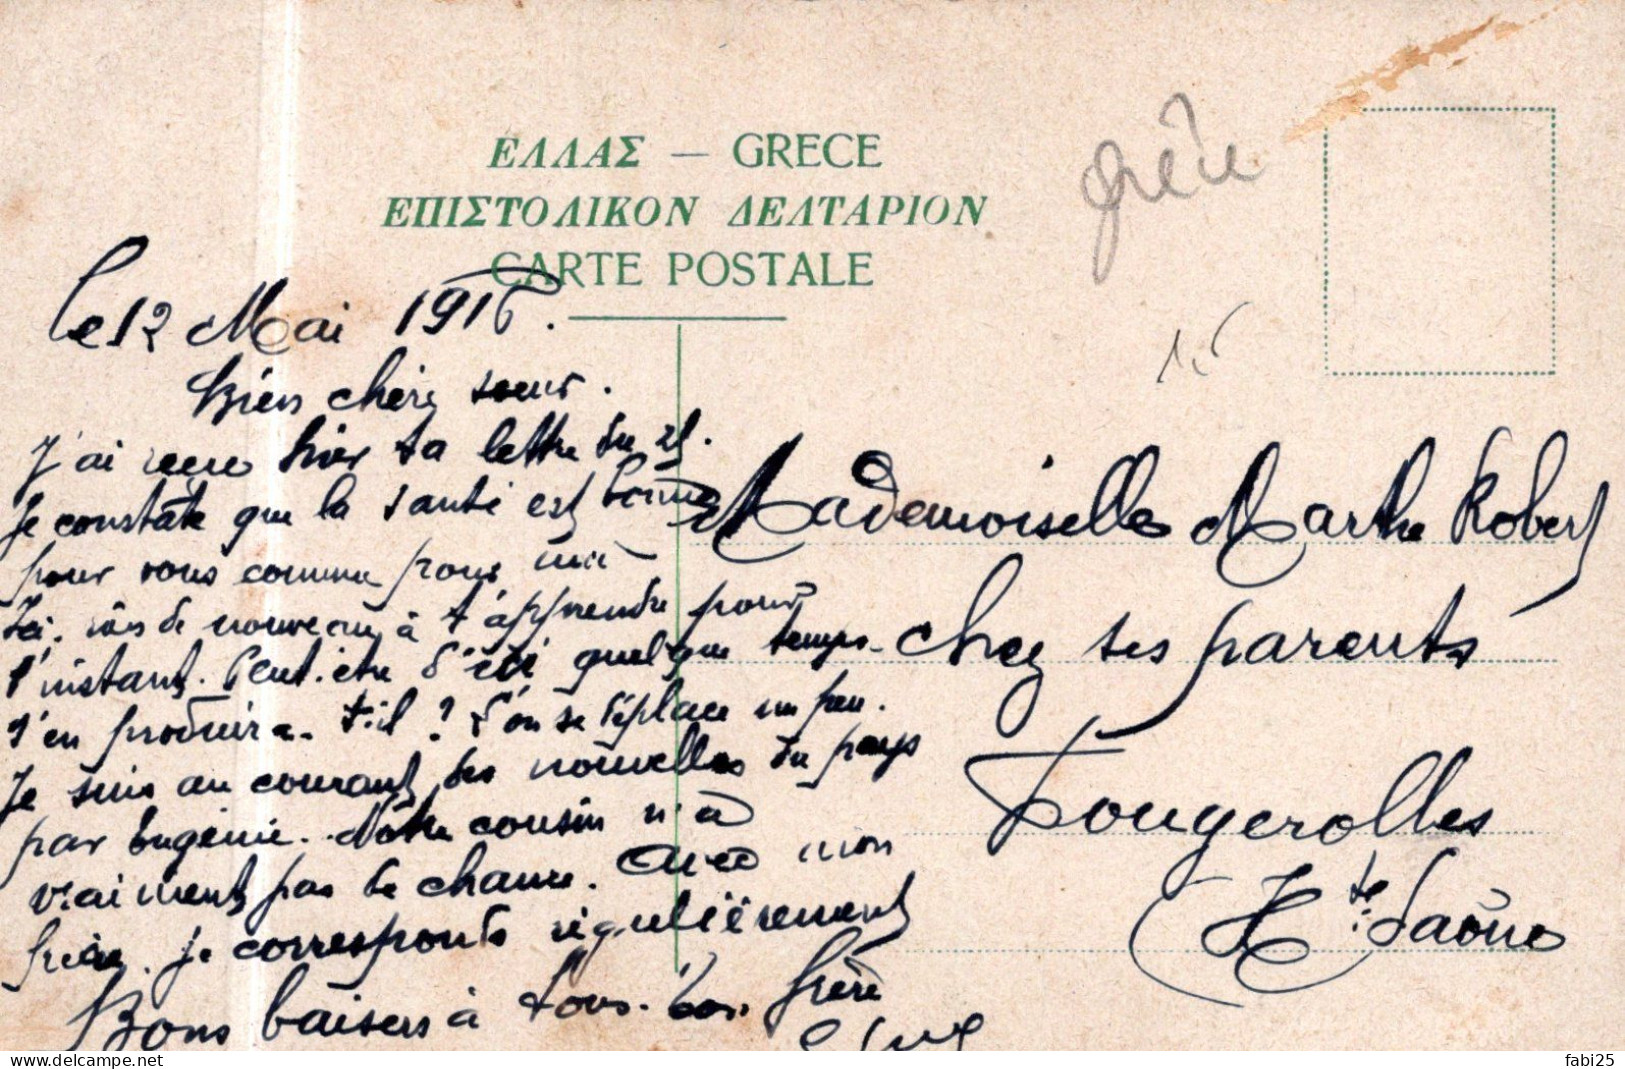 ΕΛΛΑΣ — GRECE
ΕΠΙΣΤΟΛΙΚΟΝ ΔΕΛΤΑΡΙΟΝ
CARTE POSTALE
Grèce
Le 12 Mai 1916.
Bien chère soeur.
J'ai reçu hier ta lettre du 21.
Je constate que la santé est bonne
pour vous comme pour moi
Ici. de nouveau à t'apprendre pour
l'instant. Peut-être d'ici quelque temps
s'en produira-t-il ? L'on se déplace un peu.
Je suis au courant des nouvelles du pays
par Eugénie. Notre cousin n'a
vraiment pas de chance. Avec mon
frère je corresponds régulièrement
Bons baisers à tous. Ton frère
Mademoiselle Marthe Robert
chez ses parents
Fougerolles
Hte Saône
fabi25